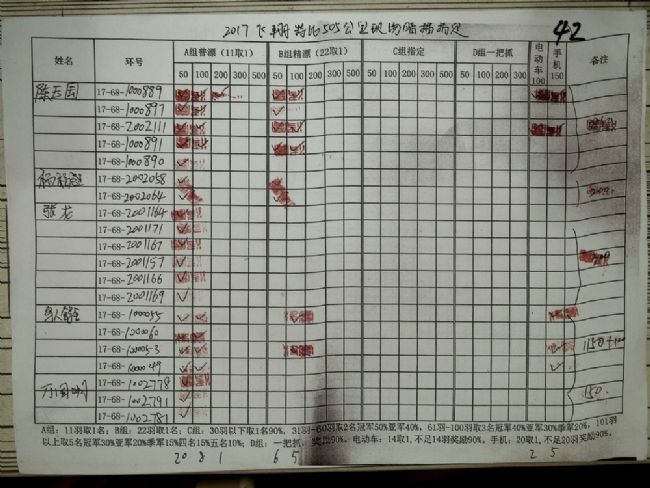 2017飞翔 505公里
42
姓名 环号 A组普漂（11取1） B组精漂（22取1） C组指定 D组一把抓 电动车100 手机150 备注
50 100 200 300 500 50 100 200 300 500 50 100 200 300 500 50 100 200 300 500
17-68-1000889
17-68-1000897
17-68-2002111
17-68-1000891
17-68-1000890
17-68-2002058
17-68-2002064
张龙 17-68-2001164
17-68-2001171
17-68-2001167
17-68-2001157
17-68-2001166
17-68-2001169
17-68-1000055
17-68-1000060
17-68-1000053
17-68-1000049
17-68-1002778
17-68-1002791 150
17-68-1002781
A组：11羽取1名；B组：22羽取1名；C组：30羽以下取1名90%，31羽-60羽取2名冠军50%亚军40%，61羽-100羽取3名冠军40%亚军30%季军20%，101羽
以上取5名冠军30%亚军20%季军15%四名15%五名10%；D组：一把抓，奖励90%。电动车：14取1,不足14羽奖励90%，手机：20取1,不足20羽奖励90%。
20 8 1 6 5 2 5